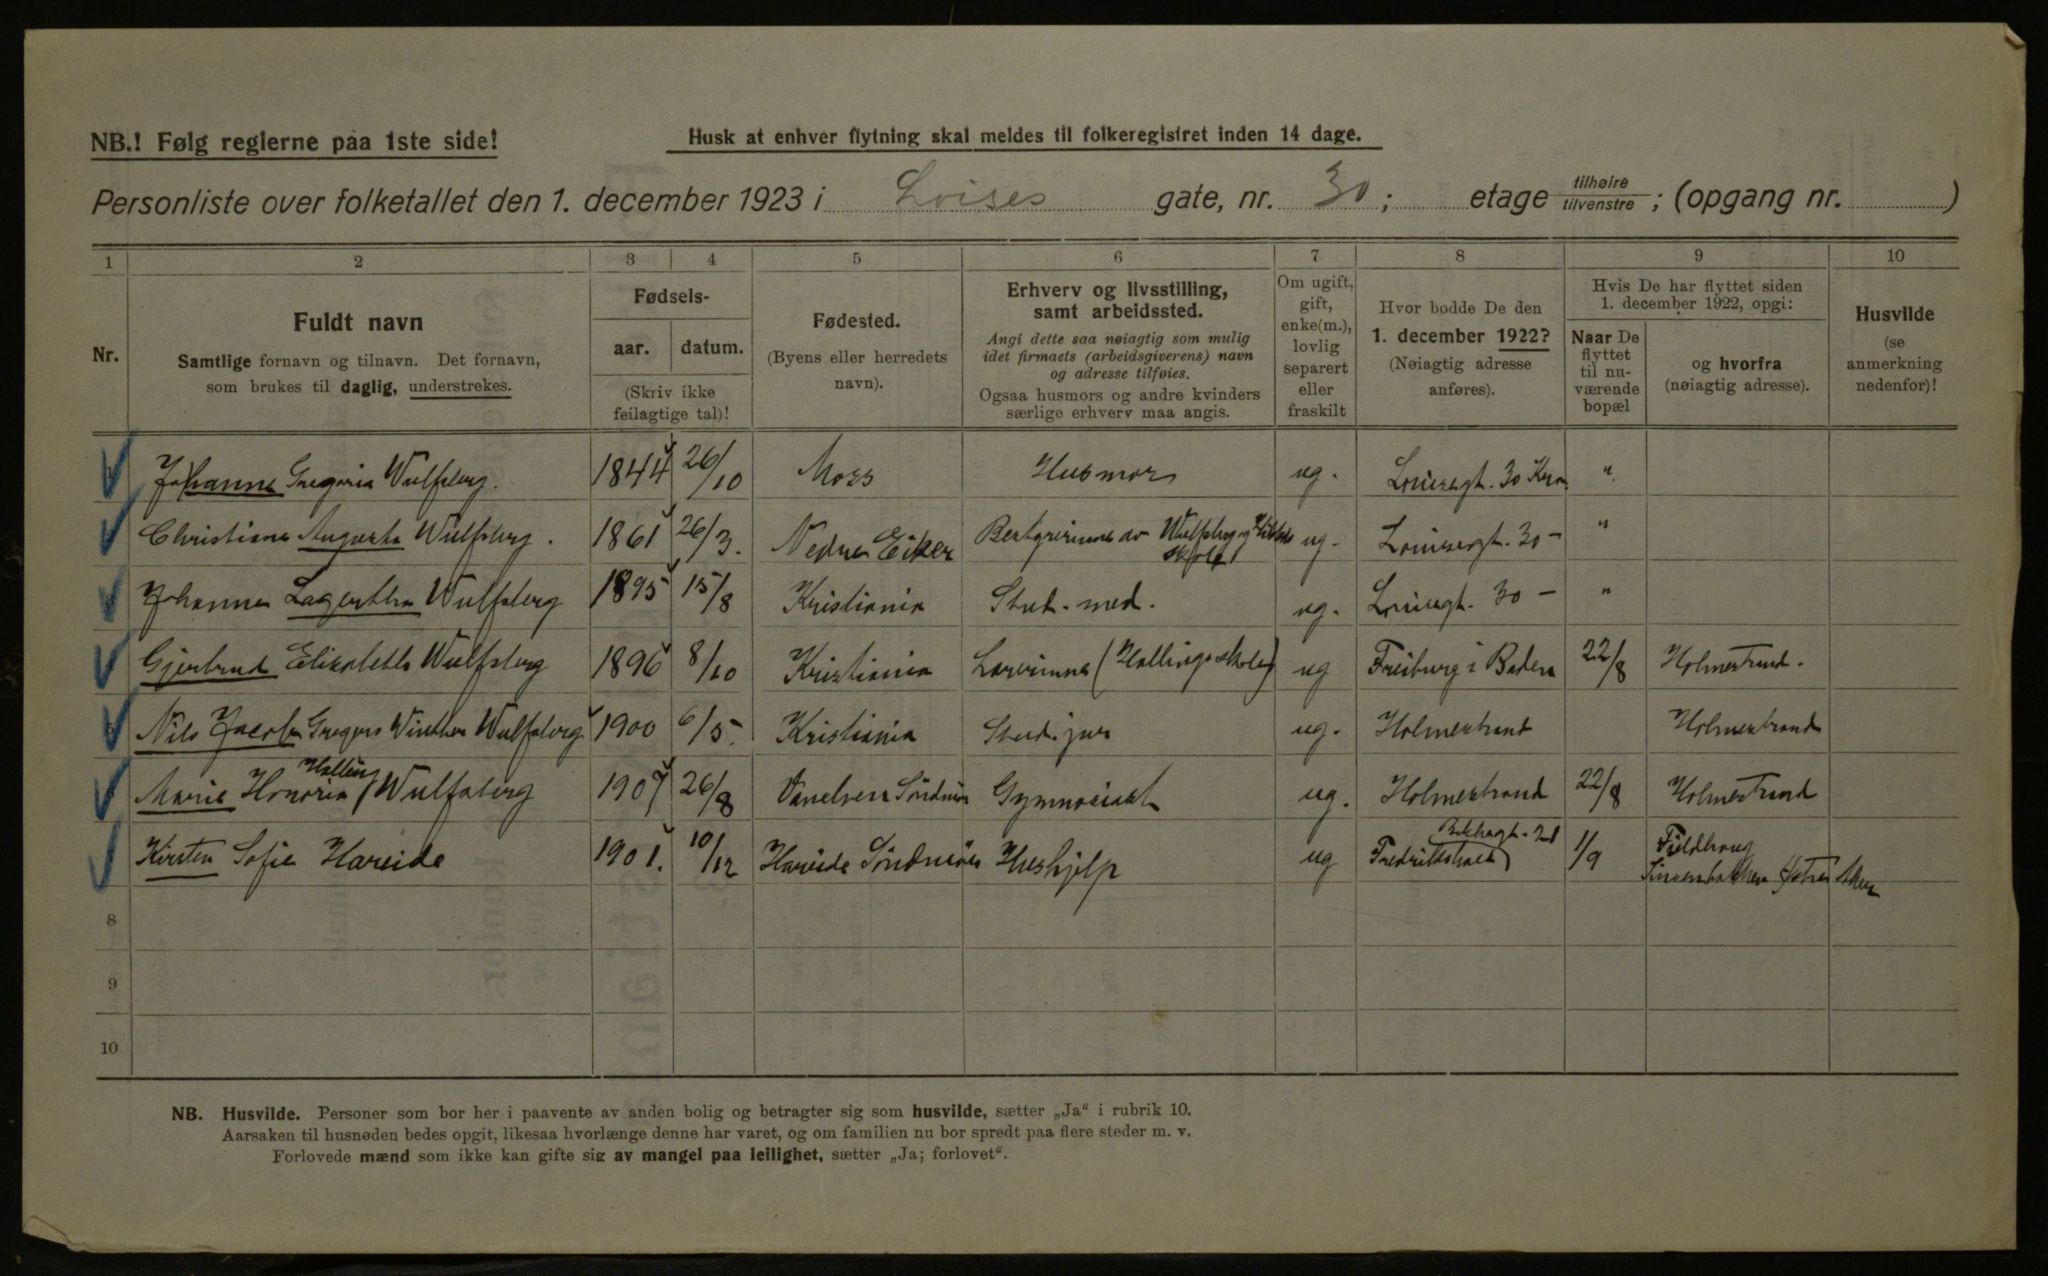 NB.! Følg reglerne paa 1ste side!
Husk at enhver flytning skal meldes til folkeregistret inden 14 dage.
Personliste over folketallet den 1. december 1923 i Loises gate, nr. 30; etage tilhøire tilvenstre; (opgang nr. )
1 2 3 4 5 6 7 8 9 10
Nr.
Fuldt navn
Samtlige fornavn og tilnavn. Det fornavn,
som brukes til daglig, understrekes.
Fødsels-
aar. datum.
(Skriv ikke
feilagtige tal)!
Fødested.
(Byens eller herredets
navn).
Erhverv og livsstilling,
samt arbeidssted.
Angi dette saa nøiagtig som mulig
idet firmaets (arbeidsgiverens) navn
og adresse tilføies.
Ogsaa husmors og andre kvinders
særlige erhverv maa angis.
Om ugift,
gift,
enke(m.),
lovlig
separert
eller
fraskilt
Hvor bodde De den
1. december 1922?
(Nøiagtig adresse
anføres).
Hvis De har flyttet siden
1. december 1922, opgi:
Naar De
flyttet
til nu-
værende
bopæl
og hvorfra
(nøiagtig adresse).
Husvilde
(se
anmerkning
nedenfor)!
Johanne Gregoria Wulfsberg. 1844 26/10 Moss Husmor ug. Louisesgt. 30 Kra "
Christiane Augusta Wulfsberg. 1861 26/3. Nedre Eiker Bestyrerinne av Wulfsberg og skole ug. Louisesgt. 30 – "
Johanne Lagertha Wulfsberg 1895 15/8 Kristiania Stud. med. ug. Louisegt. 30 – "
Gjertrud Elisabeth Wulfsberg 1896 8/10 Kristiania Lærerinne (Hallings skole) ug Freiburg i Baden 22/8 Holmestrand.
Nils Jacob Gregers Winther Wulfsberg 1900 6/5. Kristiania Stud. jur ug. Holmestrand Holmestrand
Marie Honoria Halling Wulfsberg 1907 26/8 Vanelven Søndmør Gymnasiast ug. Holmestrand 22/8 Holmestrand
Kirsten Sofie Hareide 1901. 10/12 Hareide Søndmør Hushjelp ug 21 1/9
8
9
10
NB. Husvilde. Personer som bor her i paavente av anden bolig og betragter sig som husvilde, sætter „Ja“ i rubrik 10.
Aarsaken til husnøden bedes opgit, likesaa hvorlænge denne har varet, og om familien nu bor spredt paa flere steder m. v.
Forlovede mænd som ikke kan gifte sig av mangel paa leilighet, sætter „Ja; forlovet“.